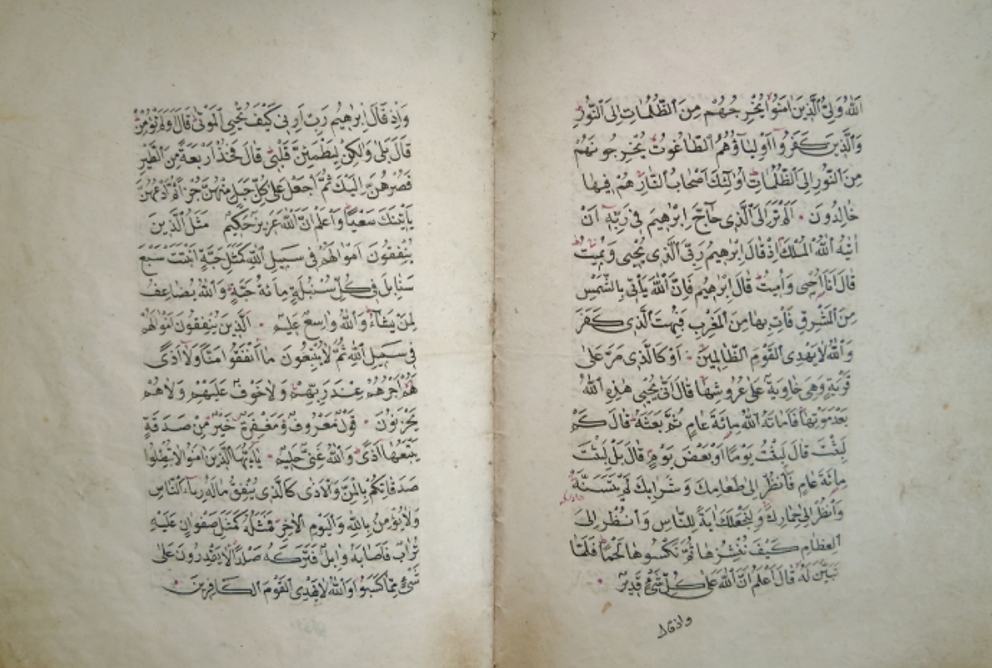 الله ولي الذين امنوا يخرجهم من الظلمات الى النور
والذين كفروا اولياؤهم الطاغوت يخرجونهم
من النور الى الظلمات اولئك اصحاب النار هم فيها
خالدون الم تر الى الذي حاج ابرهيم في ربه ان
اتيه الله الملك اذ قال ابرهيم ربي الذي يحيي ويميت
قال انا احيي واميت قال ابرهيم فان الله يأتي بالشمس
من المشرق فأت بها من المغرب فبهت الذي كفر
والله لا يهدي القوم الظالمين او كالذي مر على
قرية وهي خاوية على عروشها قال انى يحيي هذه الله
بعد موتها فاماته الله مائة عام ثم بعثه قال كم
لبثت قال لبثت يوما او بعض يوم قال بل لبثت
مائة عام فانظر الى طعامك وشرابك لم يتسنه
وانظر الى حمارك ولنجعلك اية للناس وانظر الى
العظام كيف ننشزها ثم نكسوها لحما فلما
تبين له قال اعلم ان الله على كل شيء قدير
واذ قال
واذ قال ابرهيم رب ارني كيف تحيي الموتى قال اولم تؤمن
قال بلى ولكن ليطمئن قلبي قال فخذ اربعة من الطير
فصرهن اليك ثم اجعل على كل جبل منهن جزءا ثم ادعهن
يأتينك سعيا واعلم ان الله عزيز حكيم مثل الذين
ينفقون اموالهم في سبيل الله كمثل حبة انبتت سبع
سنابل في كل سنبلة مائة حبة والله يضاعف
لمن يشاء والله واسع عليم الذين ينفقون اموالهم
في سبيل الله ثم لا يتبعون ما انفقوا منا ولا اذى
لهم اجرهم عند ربهم ولا خوف عليهم ولا هم
يحزنون قول معروف ومغفرة خير من صدقة
يتبعها اذى والله غني حليم ياءيها الذين امنوا لا تبطلوا
صدقاتكم بالمن والاذى كالذي ينفق ماله رئاء الناس
ولا يؤمن بالله واليوم الاخر فمثله كمثل صفوان عليه
تراب فاصابه وابل فتركه صلدا لا يقدرون على
شيء مما كسبوا والله لا يهدي القوم الكافرين